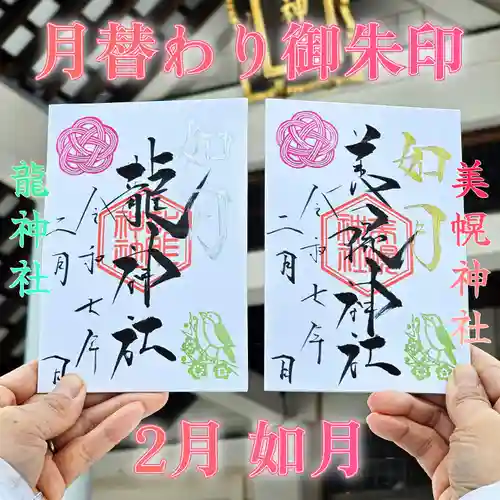 月替わり御朱印
龍神社
如月
龍神社
令和七年
二月
日
如月
美幌神社
令和七年
二月
日
美幌神社
2月 如月